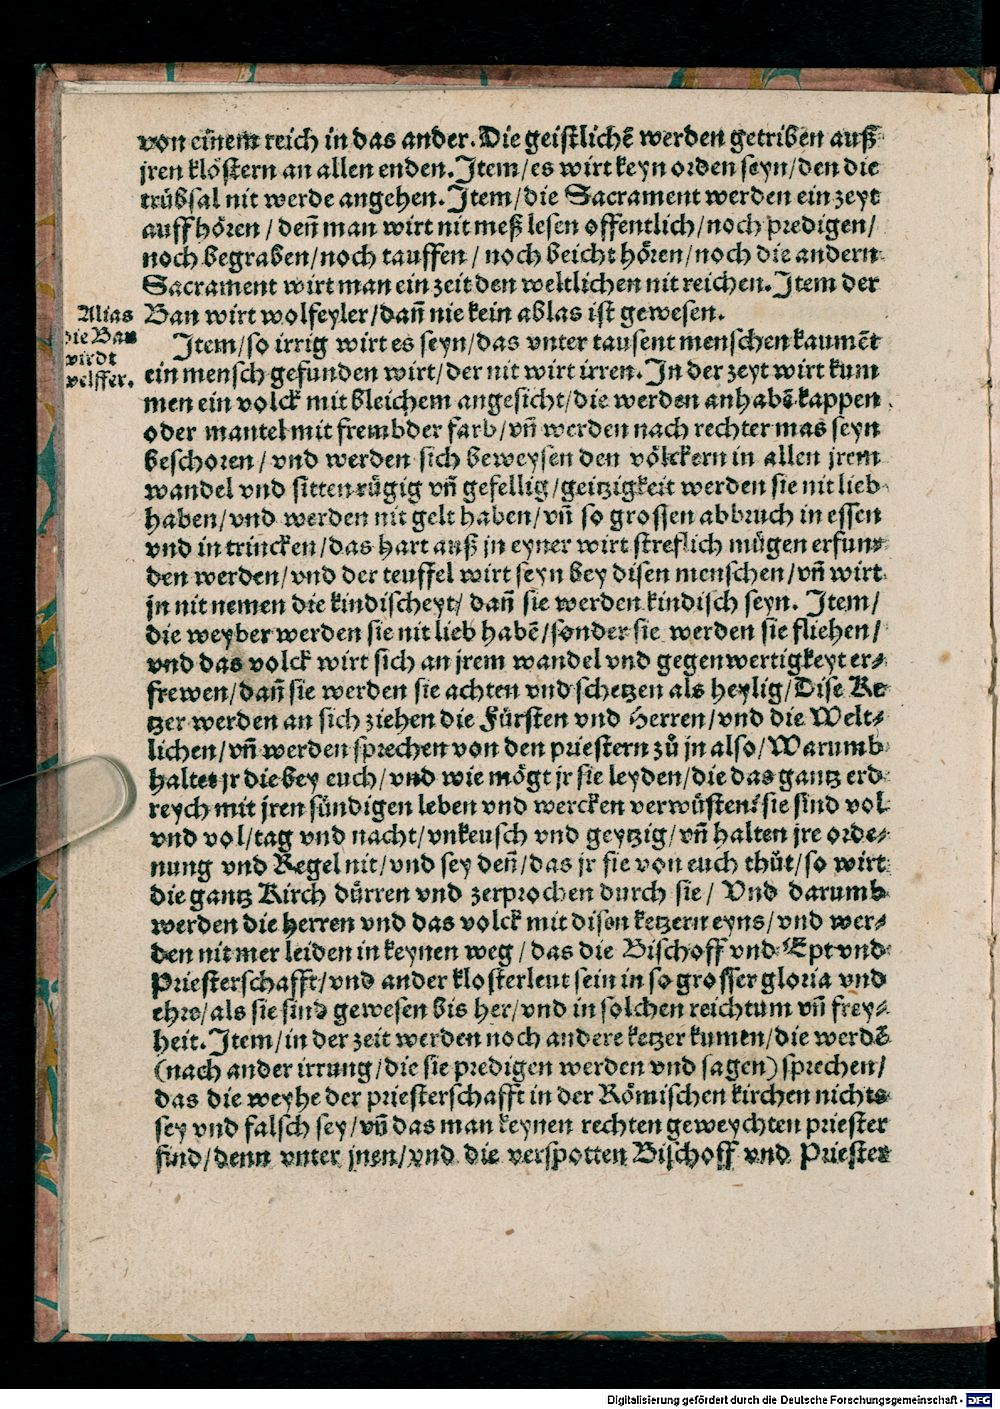 von einem reich in das ander. Die geistlichē werden getriben auß
jren klöstern an allen enden. Item/es wirt keyn orden seyn/den die
trübsal nit werde angehen. Item/die Sacrament werden ein zeyt
auffhören/deñ man wirt nit meß lesen offentlich/noch predigen/
noch begraben/noch tauffen/noch beicht hören/noch die andern
Sacrament wirt man ein zeit den weltlichen nit reichen. Item der
Ban wirt wolfeyler/dañ nie kein ablas ist gewesen.
Alias
die Ban
wirdt
welffer.
Item/so irrig wirt es seyn/das vnter tausent menschen kaumēt
ein mensch gefunden wirt/der nit wirt irren. In der zeyt wirt kum
men ein volck mit bleichem angesicht/die werden anhabē kappen
oder mantel mit frembder farb/vñ werden nach rechter mas seyn
beschoren/vnd werden sich beweysen den völckern in allen jrem
wandel vnd sitten rügig vñ gefellig/geitzigkeit werden sie nit lieb
haben/vnd werden nit gelt haben/vñ so grossen abbruch in essen
vnd in trincken/das hart auß jn eyner wirt streflich mügen erfun⸗
den werden/vnd der teuffel wirt seyn bey disen menschen/vñ wirt
jn nit nemen die kindischeyt/dañ sie werden kindisch seyn. Item/
die weyber werden sie nit lieb habē/sonder sie werden sie fliehen/
vnd das volck wirt sich an jrem wandel vnd gegenwertigkeyt er⸗
frewen/dañ sie werden sie achten vnd schetzen als heylig/Dise Ke
tzer werden an sich ziehen die Fürsten vnd Herren/vnd die Welt⸗
lichen/vñ werden sprechen von den priestern zů jn also/Warumb
haltet jr die bey euch/vnd wie mögt jr sie leyden/die das gantz erd
reych mit jren sündigen leben vnd wercken verwüsten: sie sind vol
vnd vol/tag vnd nacht/vnkeusch vnd geytzig/vñ halten jre orde⸗
nung vnd Regel nit/vnd sey deñ/das jr sie von euch thüt/so wirt
die gantz Kirch dürren vnd zerprochen durch sie/Vnd darumb
werden die herren vnd das volck mit disen ketzern eyns/vnd wer⸗
den nit mer leiden in keynen weg/das die Bischoff vnd Ept vnd
Priesterschafft/vnd ander klosterleut sein in so grosser gloria vnd
ehre/als sie sind gewesen bis her/vnd in solchen reichtum vñ frey⸗
heit. Item/in der zeit werden noch andere ketzer kumen/die werdē
(nach ander irrung/die sie predigen werden vnd sagen) sprechen/
das die weyhe der priesterschafft in der Römischen kirchen nichts
sey vnd falsch sey/vñ das man keynen rechten geweychten priester
find/denn vnter jnen/vnd die verspotten Bischoff vnd Priester
Digitalisierung gefördert durch die Deutsche Forschungsgemeinschaft - DFG